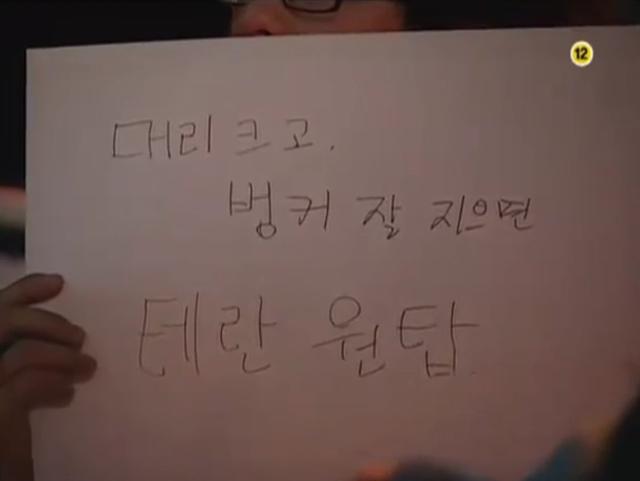 12
대리 크고.
벙커 잘 지으면
테란 원탑.